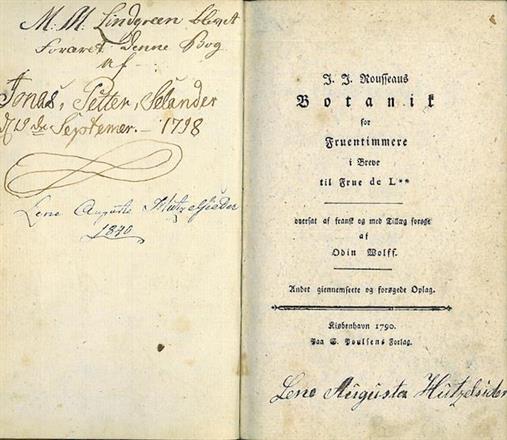 M. M. Lindgreen blevet
foraret denne Bog
af
Jonas, Petter, Selander
19 de Septemer. — 1798
Lene Auguste Hutzelsieder
1840
J. J. Rousseaus
Botanik
for
Fruentimmere
i Breve
til Frue de L**
oversat af fransk og med Tillæg forøget
af
Odin Wolff.
Andet giennemseete og forøgede Oplag.
Kiøbenhavn 1790.
Paa S. Poulsens Forlag.
Lene Augusta Hutzelsider